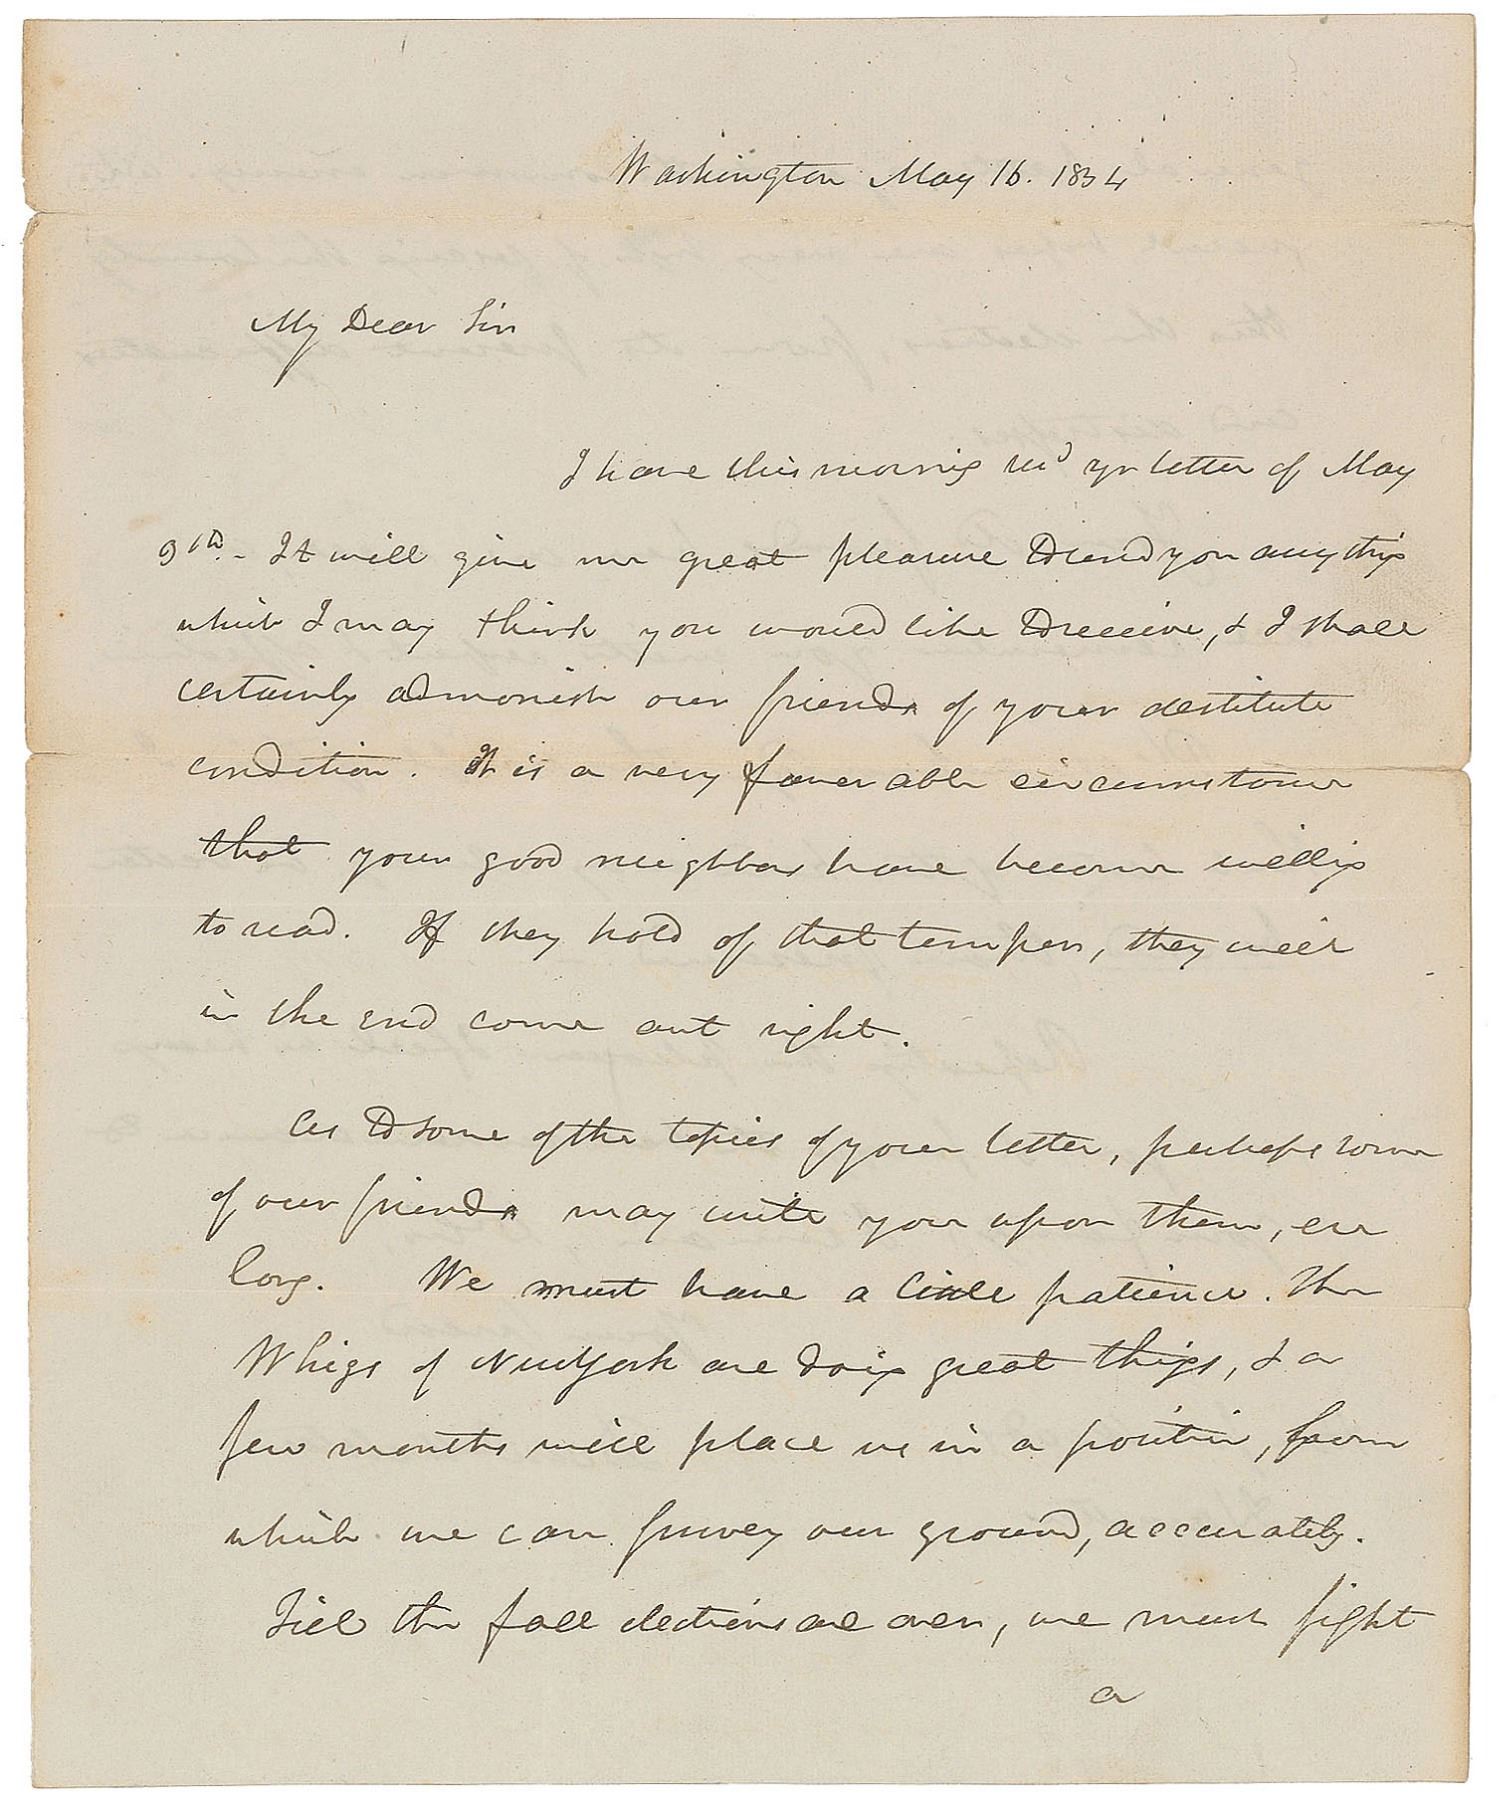 Washington May 16. 1834
My Dear Sir
I have this morning recd yr letter of May
9th. - It will give me great pleasure to send you any thing
which I may think you would like to receive, & I shall
certainly admonish our friends of your destitute
condition. It is a very favorable circumstance
that your good neighbors have become willing
to read. If they hold of that temper, they will
in the end come out right.
As to some of the topics of your letter, perhaps some
of our friends may write you upon them, ere
long. We must have a little patience. The
Whigs of New York are doing great things, & a
few months will place us in a position, from
which we can survey our ground, accurately.
Till the fall elections are over, we must fight
a